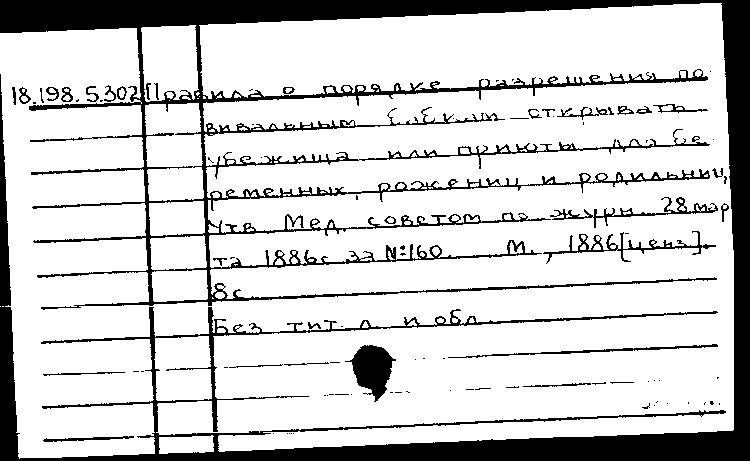 18.198.5.302 Правила о порядке разрешения по
вивальным бабкам открывать
убежища или приюты для бе
ременных, рожениц и родильниц,
Утв. Мед. советом по журн. 28 мар
та 1886г за №160. М., 1886[ценз].
8с.
Без тит. л. и обл.